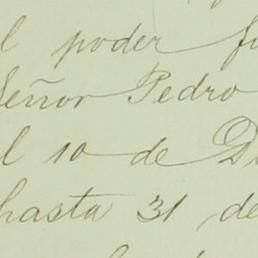 l poder f
Señor Pedro
l 10 de D
hasta 31 de